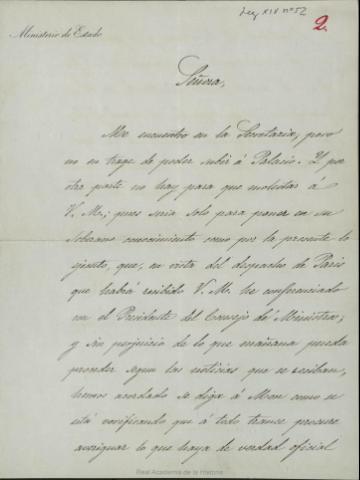 Leg XIV nº 52
2.
Ministerio de Estado
Señora,
Me encuentro en la Secretaria, pero
no en trage de poder subir á Palacio. Y por
otra parte no hay para que molestar á
V. M.; pues seria solo para poner en su
soberano conocimiento como por la presente lo
ejecuto, que, en vista del despacho de Paris
que habrá recibido V. M. he conferenciado
con el Presidente del Consejo de Ministros;
y sin perjuicio de lo que mañana pueda
proceder segun las noticias que se reciban,
hemos acordado se diga á Mon como se
está verificando que á todo trance procure
averiguar lo que haya de verdad oficial
Real Academia de la Historia